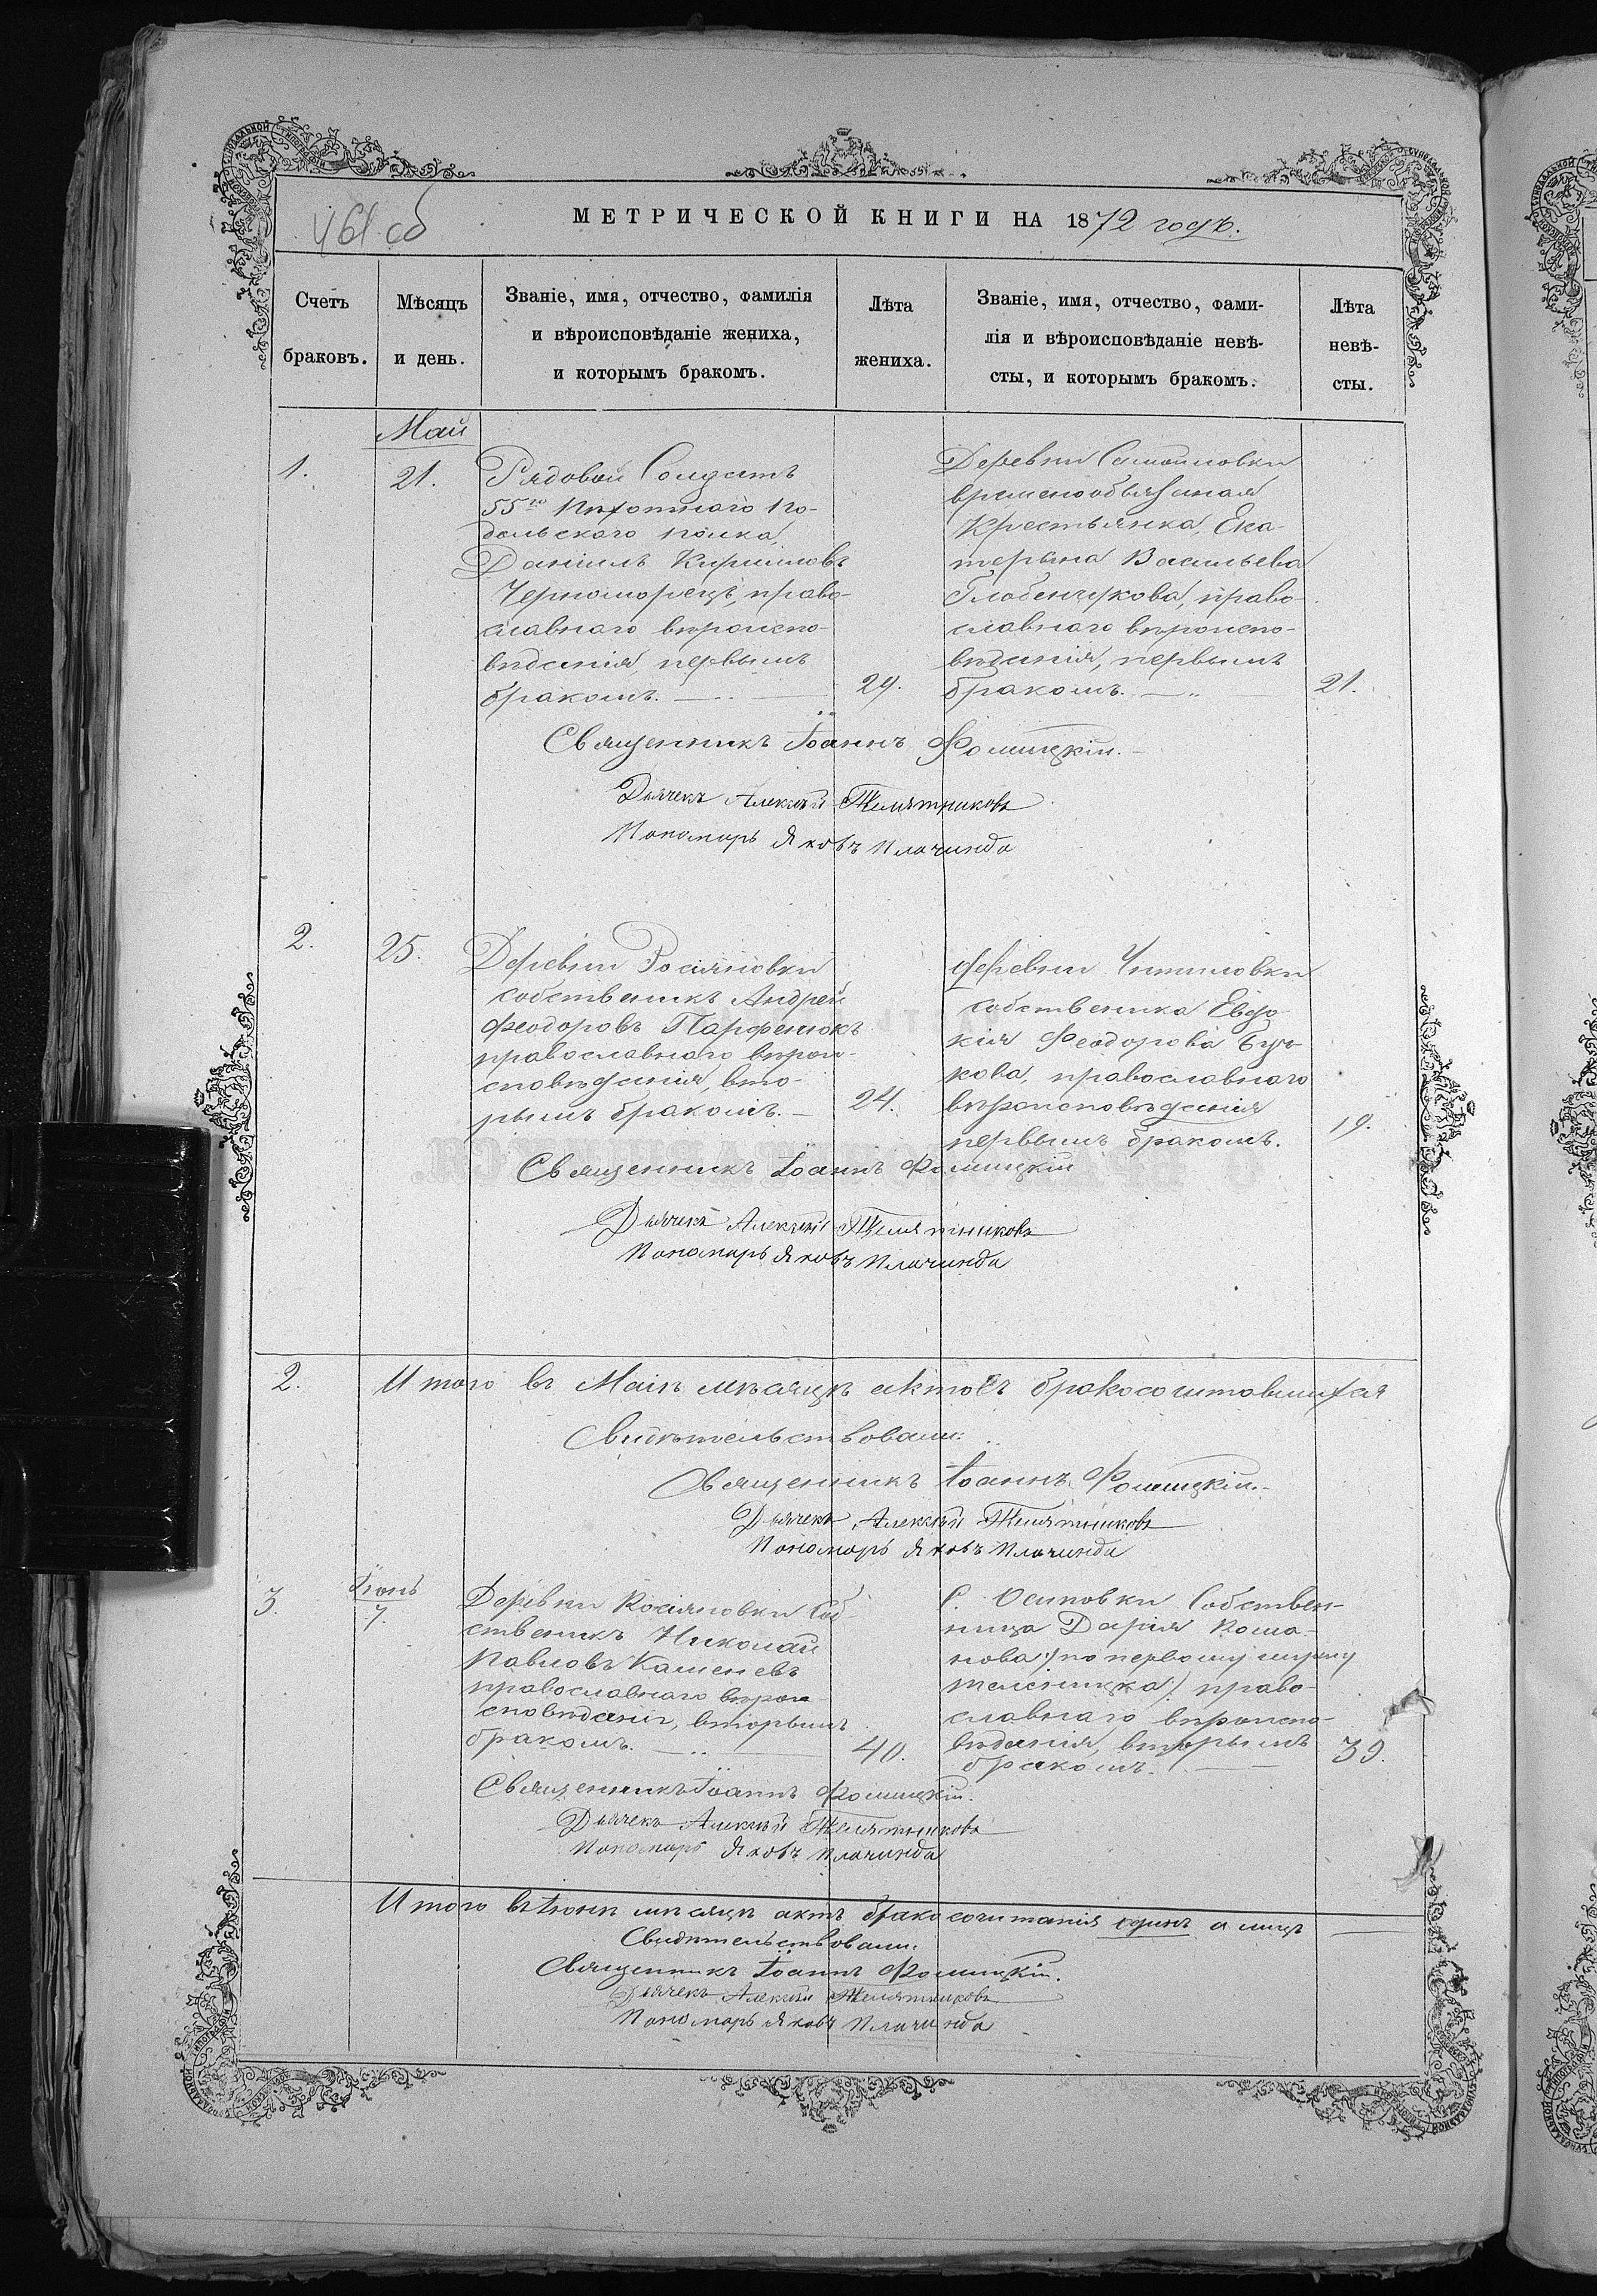 МЕТРИЧЕСКОЙ КНИГИ НА 1872 годъ.
461 об
Счетъ браковъ.
Мѣсяцъ и день.
Званіе, имя, отчество, фамилія
и вѣроисповѣданіе жениха,
и которымъ бракомъ.
Лѣта жениха.
Званіе, имя, отчество, фами-
лія и вѣроисповѣданіе невѣ-
сты, и которымъ бракомъ.
Лѣта невѣ-
сты.
Май
1.
21.
Рядовой Солдатъ
55го Пѣхотнаго По-
дольскаго полка,
Даніилъ Кирилловъ
Черноморецъ, право-
славнаго вѣроиспо-
вѣданія, первымъ
бракомъ.
29.
Деревни
временообязаная
Крестьянка, Ека-
терина Васильева
право-
славнаго вѣроиспо-
вѣданія, первымъ
бракомъ.
21.
Священникъ Іоаннъ Фомицкій.
Дьячекъ Алексѣй Телятниковъ
Пономарь Яковъ Плачинда
2.
25.
Деревни Росіяновки
собственикъ Андрей
Феодоровъ Парфенюкъ
православнаго вѣрои-
сповѣданія, вто-
рымъ бракомъ.
24.
Деревни
собственика Евдо-
кія Феодорова
кова, православнаго
вѣроисповѣданія
первымъ бракомъ.
19.
Священникъ Іоаннъ Фомицкій
Дьячекъ Алексѣй Телятниковъ
Пономарь Яковъ Плачинда
2.
Итого въ Маіѣ мѣсяцѣ актовъ бракосочитавшихся
Свидѣтельствовали:
Священникъ Іоаннъ Фомицкій.
Дьячекъ Алексѣй Телятниковъ
Пономарь Яковъ Плачинда
3.
Іюнь
7.
Деревни Росіяновки Соб-
ственикъ Николай
Павловъ Каменевъ
православнаго вѣрои-
сповѣданія, вторымъ
бракомъ.
40.
С. Осиповки Собствен-
ница Дарія Рома-
нова /по первому мужу
право-
славнаго вѣроиспо-
вѣданія, вторымъ
бракомъ.
39.
Священникъ Іоаннъ Фомицкій.
Дьячекъ Алексѣй Телятниковъ
Пономарь Яковъ Плачинда
Итого въ Іюнѣ мѣсяцѣ актъ бракосочитанія одинъ а лицъ
Свидѣтельствовали:
Священникъ Іоаннъ Фомицкій.
Дьячекъ Алексѣй Телятниковъ
Пономарь Яковъ Плачинда